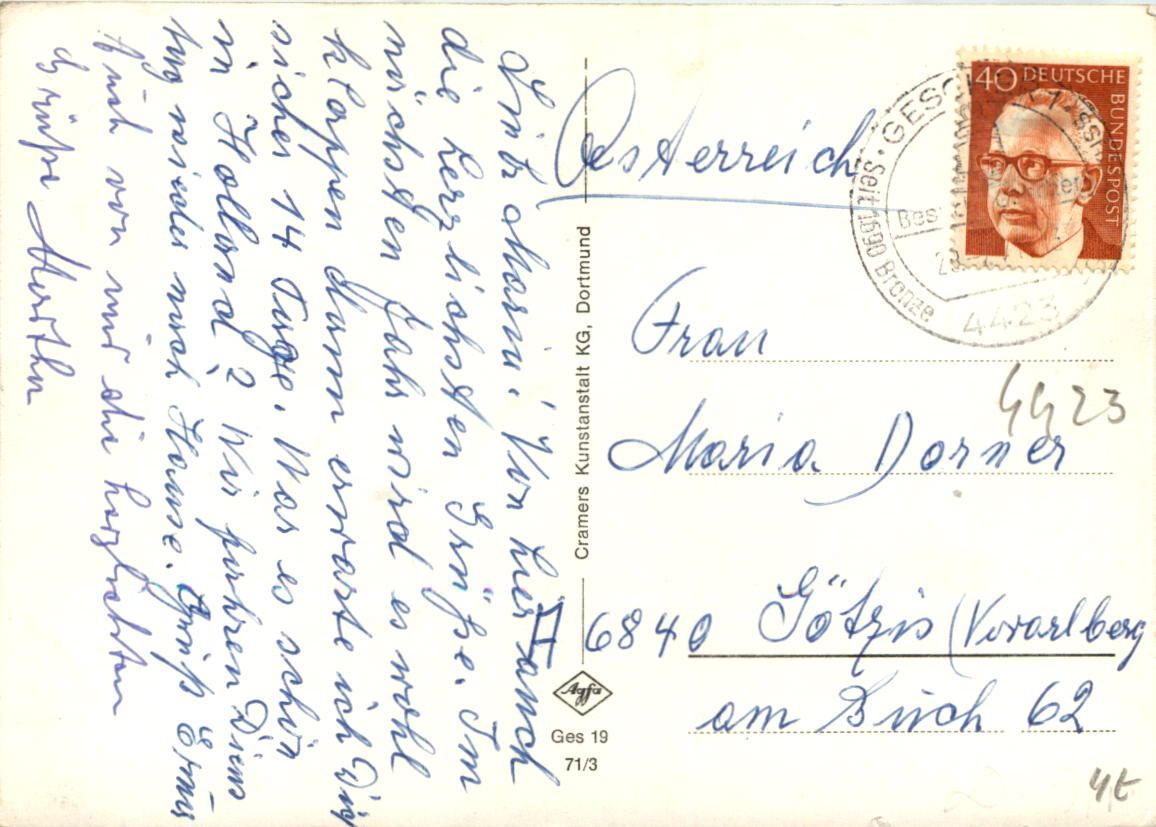 Lieb Maria! Von hier auch
die herzlichsten Grüße. Im
nächsten Jahr wird es wohl
klappen dann erwarte ich Dich
sicher 14 Tage. War es schön
in Holland? Wir fahren Diens
tag wieder nach Hause. Gruß
Auch von mir die herzlichsten
Grüße Martha
Cramers Kunstanstalt KG, Dortmund
Agfa
Ges 19
71/3
40 DEUTSCHE BUNDESPOST
Seit 1690 Bronze
4423
Österreich
Frau
4423
Maria Dorner
6840 Götzis (Vorarlberg
am Buch 62